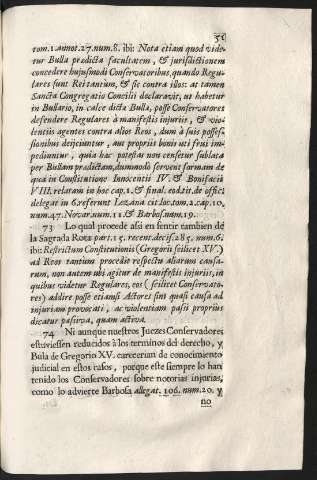 51
tom. 1. annot. 27. num. 8. ibi: Nota etiam quod vide-
tur Bulla predicta facultatem, & jurisdictionem
concedere hujusmodi Conservatoribus, quando Regu-
lares sunt Rei tantùm, & sic contra illos: at tamen
Sancta Congregatio Concilii declaravit, ut habetur
in Bullario, in calce dictæ Bulla, posse Conservatores
defendere Regulares à manifestis injuriis, & vio-
lentiis agentes contra alios Reos, dum à suis posses-
sionibus dejiciuntur, aut propriis bonis uti frui im-
pediuntur, quia hæc potestas non censetur sublata
per Bullam prædictam, dummodo servent formam de
qua in Constitutione Innocentii IV. & Bonifacii
VIII. relatam in hoc cap. 1. & final. eod. tit. de offici
delegat in 6. referunt Lezana cit. loc. tom. 2. cap. 10.
num. 47. Novar. num. 11. & Barbos. num. 19.
73 Lo qual procede assi en sentir tambien de
la Sagrada Rota part. 15. recent. decis. 285. num. 6.
ibi: Restrictum Constitutionis (Gregorii scilicet XV.)
ad Reos tantium procedit respectu aliarum causa-
rum, non autem ubi agitur de manifestis injuriis, in
quibus videtur Regulares, eos (scilicet Conservato-
res) addire posse etiamsi Actores sint quasi causa ad
injuriam provocati, ac violentiam pasti propriùs
dicatur pasiva, quam activa.
74 Ni aunque nuestros Juezes Conservadores
estuviessen reducidos à los terminos del derecho, y
Bula de Gregorio XV. carecerian de conocimiento
judicial en estos casos, porque este siempre lo han
tenido los Conservadores sobre notorias injurias,
como lo advierte Barbosa allegat. 106. num. 20. y
no